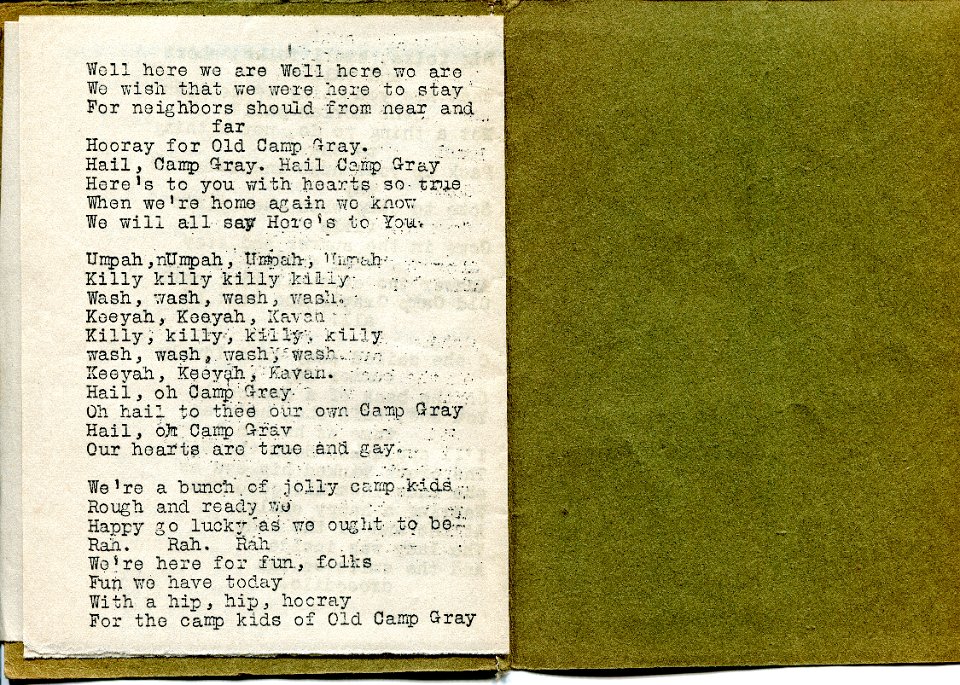 Well here we are Well here we are
We wish that we were here to stay
For neighbors should from near and
far
Hooray for Old Camp Gray.
Hail, Camp Gray. Hail Camp Gray
Here's to you with hearts so true
When we're home again we know
We will all say Here's to You.

Umpah,nUmpah, Umpah, Umpah
Killy killy killy killy
Wash, wash, wash, wash.
Keeyah, Keeyah, Kavan
Killy, killy, killy, killy
wash, wash, wash, wash.
Keeyah, Keeyah, Kavan.
Hail, oh Camp Gray
Oh hail to thee our own Camp Gray
Hail, oh Camp Gray
Our hearts are true and gay.

We're a bunch of jolly camp kids
Rough and ready we
Happy go lucky as we ought to be-
Rah. Rah. Rah
We're here for fun, folks
Fun we have today
With a hip, hip, hooray
For the camp kids of Old Camp Gray